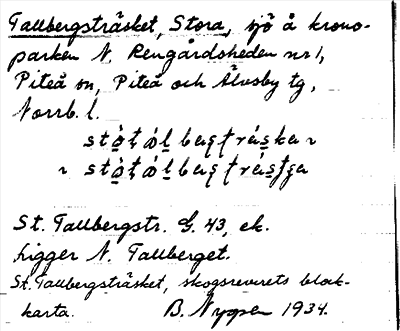 Tallbergsträsket, Stora, sjö å krono-
parken N. Rengårdsheden nr 1,
Piteå sn, Piteå och Älvsby tg,
Norrb. l.
St. Tallbergstr. G. 43, ek.
Ligger N. Tallberget.
St. Tallbergsträsket, skogsrevirets blad-
karta. B. Nyper 1934.